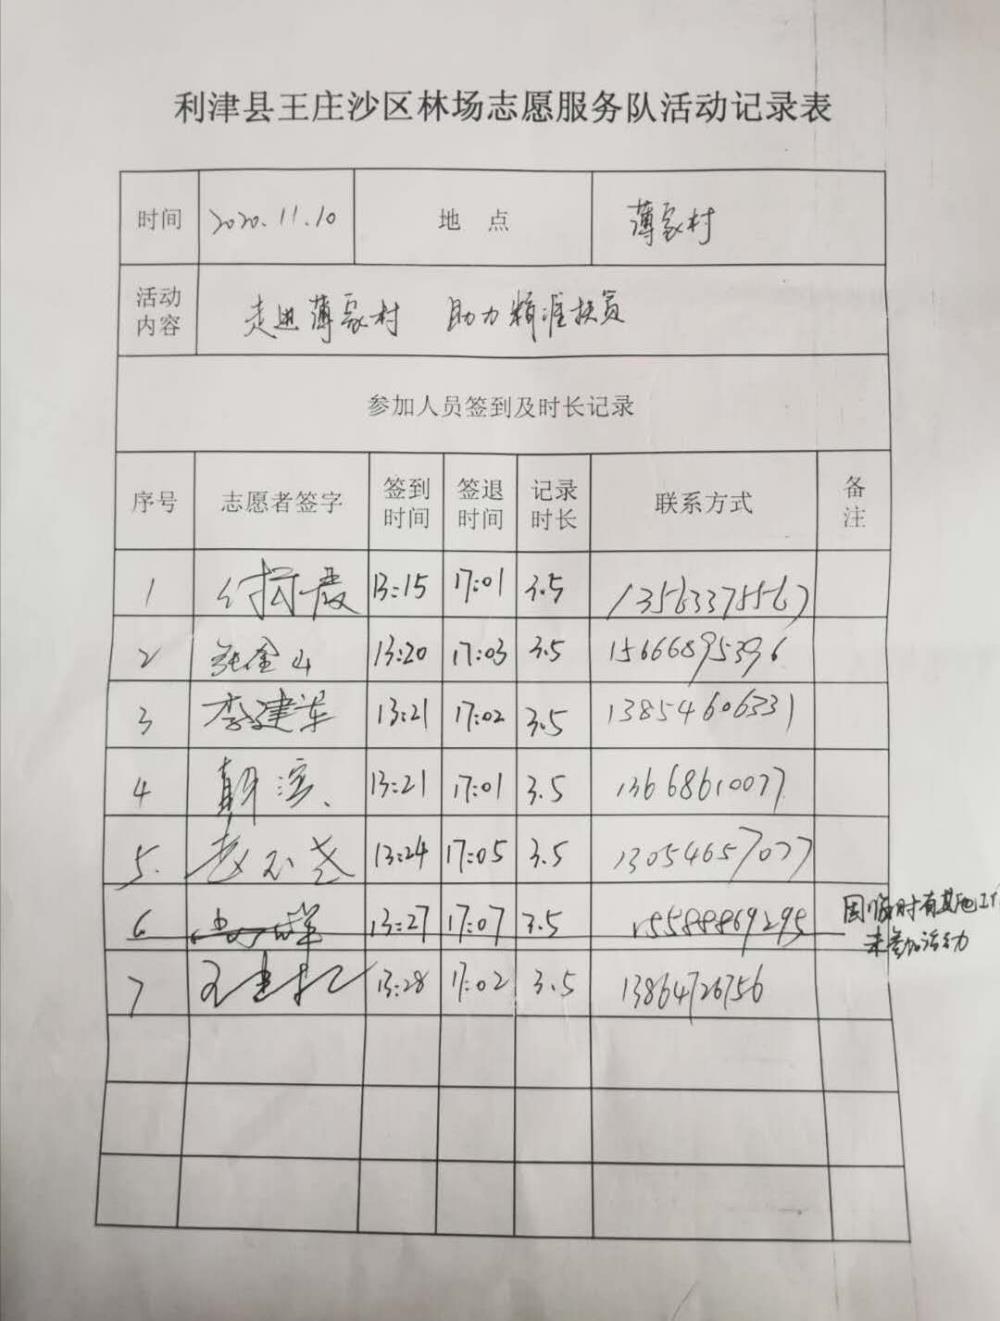 利津县王庄沙区林场志愿服务队活动记录表
时间 2020.11.10 地 点 薄家村
活动
内容
走进薄家村 助力精准扶贫
参加人员签到及时长记录
序号 志愿者签字 签到 签退 记录 联系方式 备
时间 时间 时长 注
1 13:15 17:01 3.5 13563375567
2 张金山 13:20 17:03 3.5 15666895396
3 李建华 13:21 17:02 3.5 13854606331
4 13:21 17:01 3.5 13668610077
5. 13:24 17:05 3.5 13054657077
6 13:27 17:07 3.5 15588869295 因临时有其他工作
未参加活动
7 13:28 17:02 3.5 13864726756